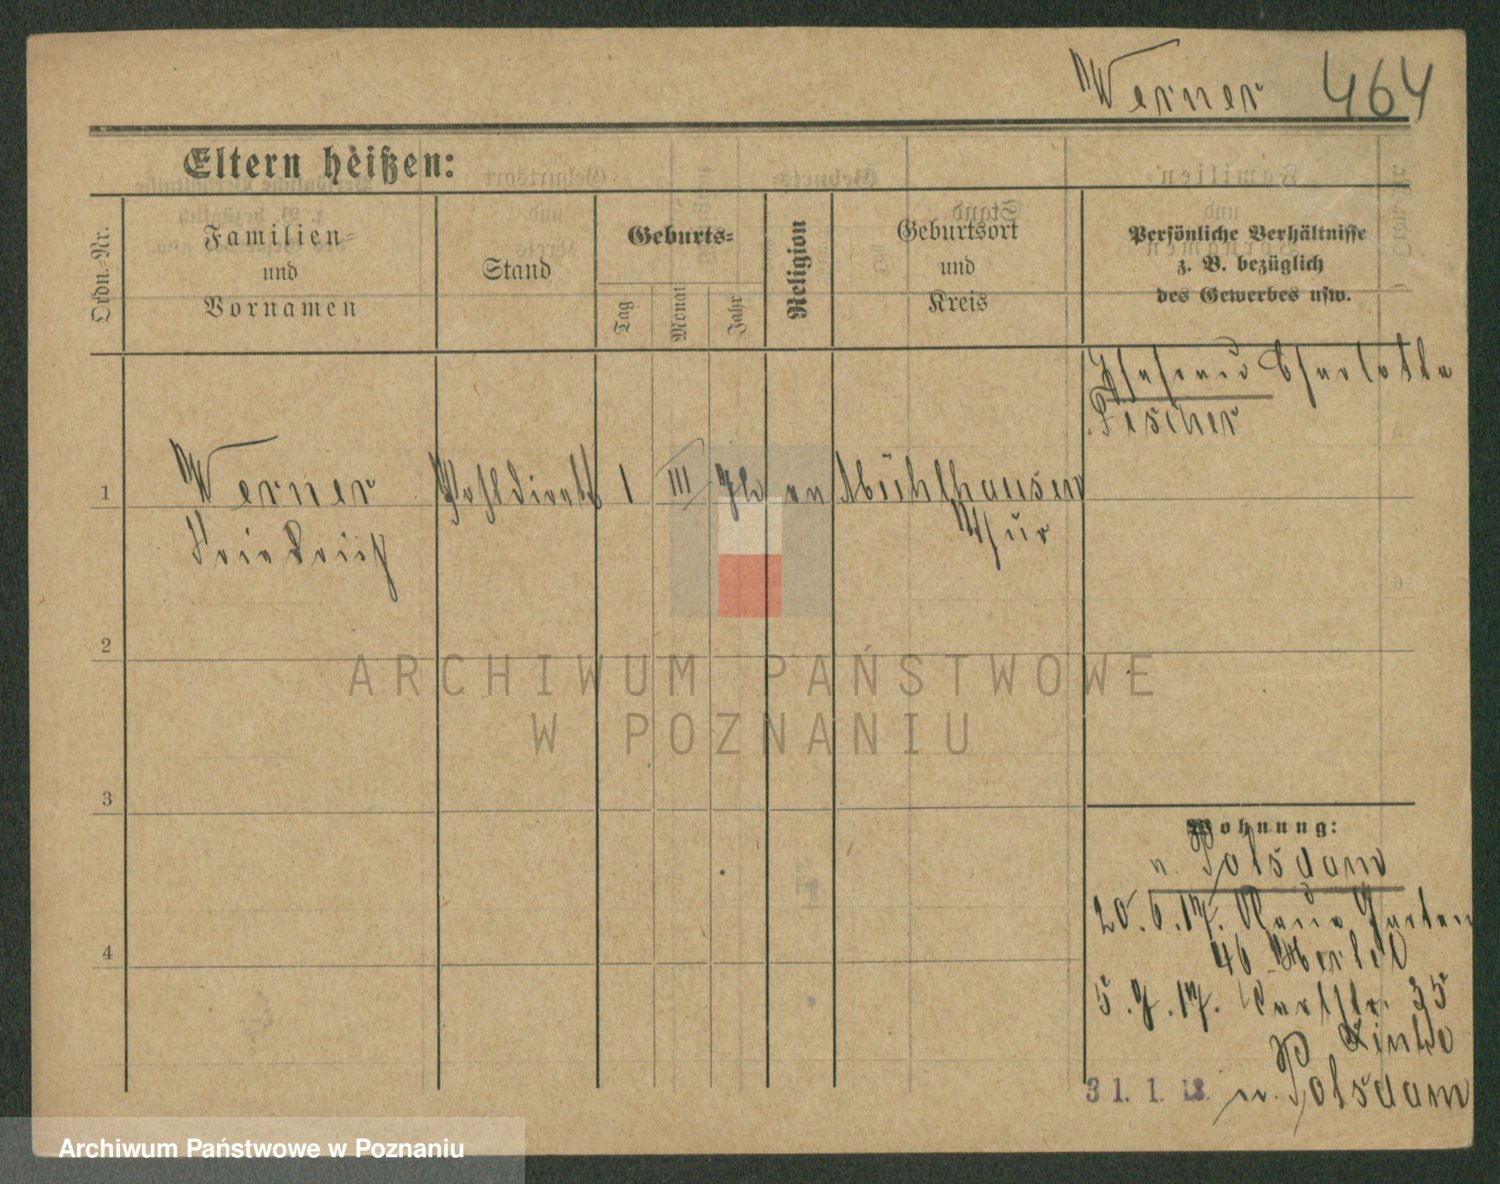 Werner 464
Eltern heißen:
Ordn.-Nr.
Familien-
und
Vornamen
Stand
Geburts-
Tag
Monat
Jahr
Religion
Geburtsort
und
Kreis
Persönliche Verhältnisse
z. B. bezüglich
des Gewerbes usw.
Ehefrau Charlotte
Fischer
1
Werner
Friedrich
1
III
ev
Mühlhausen
Thür
2
3
4
Wohnung:
n. Potsdam
20.6.17. Neue Garten
46
5.9.17. Carlstr. 35
Linke
31. 1. 18. n. Potsdam
ARCHIWUM PAŃSTWOWE
W POZNANIU
Archiwum Państwowe w Poznaniu